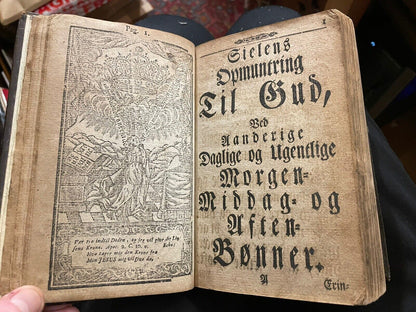 Pag. 1.
Vær tro indtil Døden, og jeg vil give dig Liv-
sens Krone. Apoc. 2. C. 10. v. Echo:
Hen tager mig den Krone fra
Min JESUS mig vil give da,
1
Sielens
Opmuntring
Til Gud,
Ved
Aanderige
Daglige og Ugentlige
Morgen-
Middag- og
Aften-
Bønner.
A
Erin-